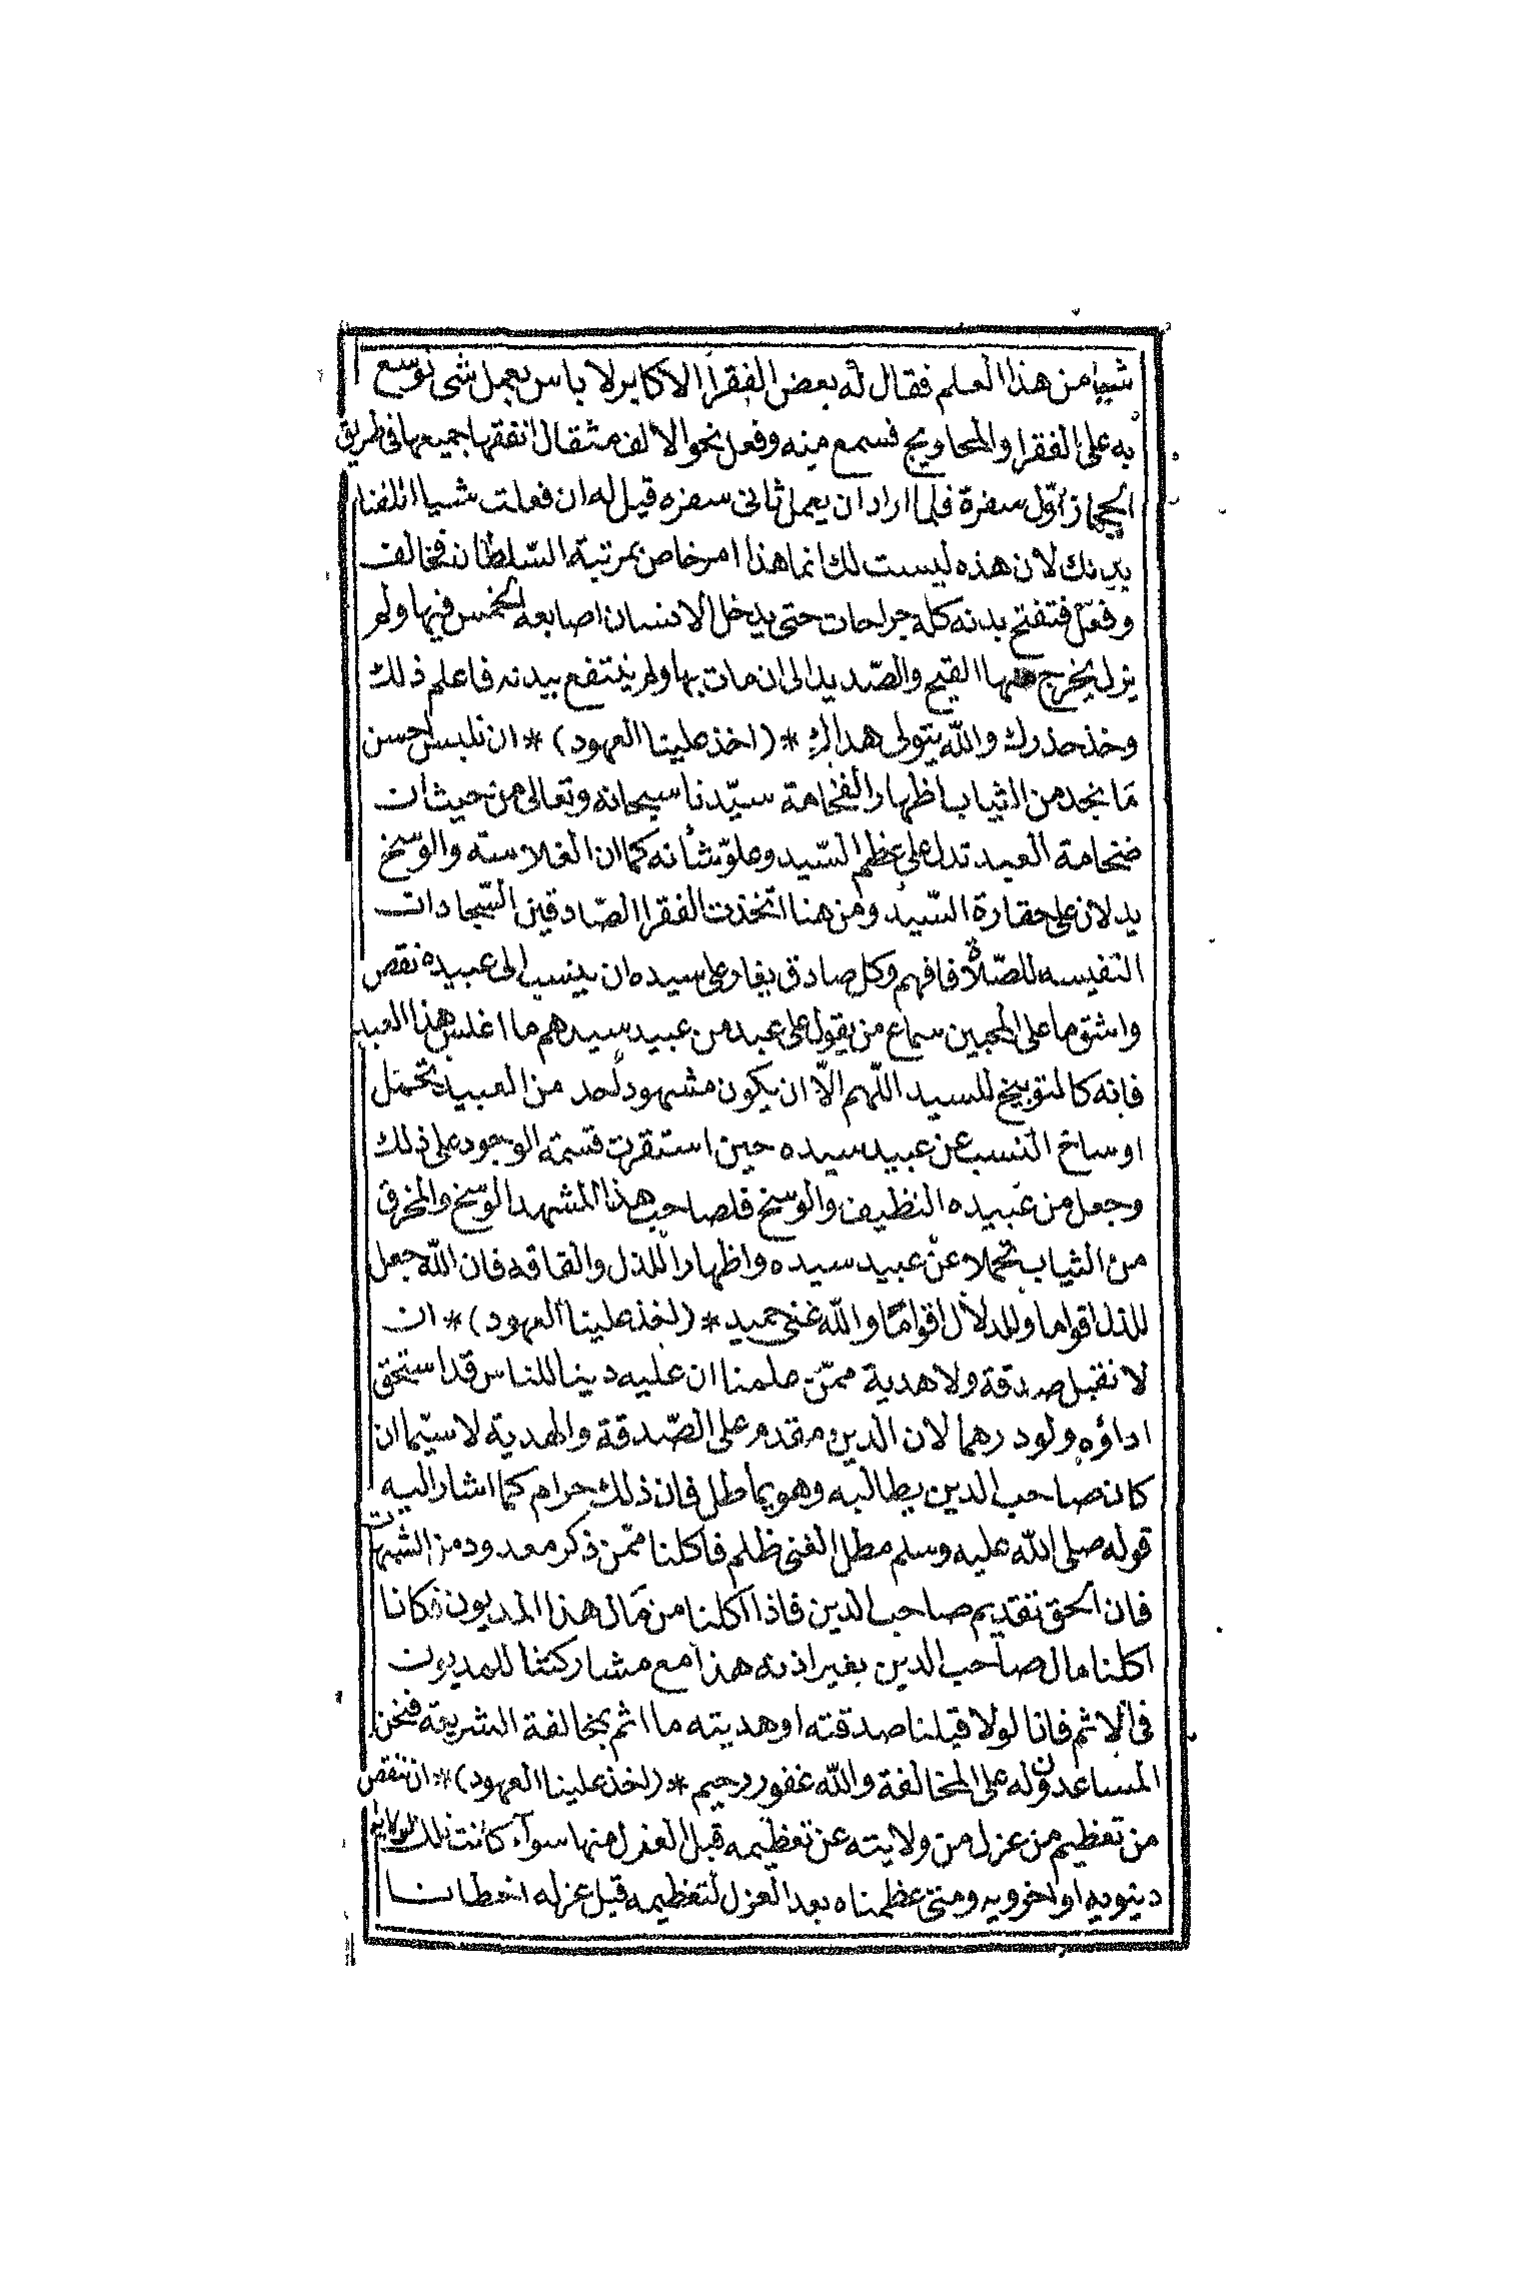 شيا من هذا العلم فقال له بعض الفقرا الاكابر لا باس بعمل شى توسع
به على الفقرا والمحاويج فسمع منه وفعل نحو الالف مثقال انفقها جميعها فى طريق
الحجاز اوّل سفرة فلما اراد ان يعمل ثانى سفره قيل له ان فعلت شيا اتلفنا
بدنك لان هذه ليست لك انما هذا امر خاص بمرتبة السّلطان فخالف
وفعل فتفتح بدنه كله جراحات حتى يدخل الانسان اصابعه الخمس فيها ولم
يزل يخرج منها القيح والصّديد الى ان مات بها ولم ينتفع ببدنه فاعلم ذلك
وخذ حذرك والله يتولى هداك * (اخذ علينا العهود) * ان نلبس احسن
ما نجد من الثياب اظهارا لفخامة سيّدنا سبحانه وتعالى من حيث ان
ضخامة العبد تدل على عظم السّيد وعلوّ شأنه كما ان الغلاسته والوسخ
يدلان على حقارة السّيد ومن هنا اتخذت الفقرا الصّادقين السّجادات
النفيسه للصّلاة فافهم وكل صادق يغار على سيده ان ينسب الى عبيده نقص
واشق ما على المحبين سماع من يقول على عبد من عبيد سيدهم ما اغلس هذا العبد
فانه كالتوبيخ للسيد اللّهم الّا ان يكون مشهود احد من العبيد تحمل
اوساخ النسب عن عبيد سيده حين استقرت قسمة الوجود على ذلك
وجعل من عبيده النظيف والوسخ فلصاحب هذا المشهد الوسخ والمخرق
من الثياب تحملا عن عبيد سيده واظهارا للذل والفاقه فان الله جعل
للذل اقواما وللدلال اقواما والله غنى حميد * (اخذ علينا العهود) * ان
لا نقبل صدقة ولا هدية ممّن علمنا ان عليه دينا للناس قد استحق
اداؤه ولو درهما لان الدين مقدم على الصّدقة والهدية لا سيّما ان
كان صاحب الدين يطالبه وهو يماطل فان ذلك حرام كما اشار اليه
قوله صلى الله عليه وسلم مطل الغنى ظلم فاكلنا ممّن ذكر معدود من الشبهات
فان الحق تقديم صاحب الدين فاذا اكلنا من مال هذا المديون فكانا
اكلنا مال صاحب الدين بغير اذنه هذا مع مشاركتنا للمديون
فى الاثم فانا لولا قبلنا صدقته او هديته ما اثم بمخالفة الشريعة فنحن
المساعدون له على المخالفة والله غفور رحيم * (اخذ علينا العهود) * ان ننقص
من تعظيم من عزل من ولايته عن تعظيمه قبل العزل منها سوآء كانت تلك الولاية
دنيويه او اخرويه ومتى عظمناه بعد العزل لتعظيمه قبل عزله اخطانا